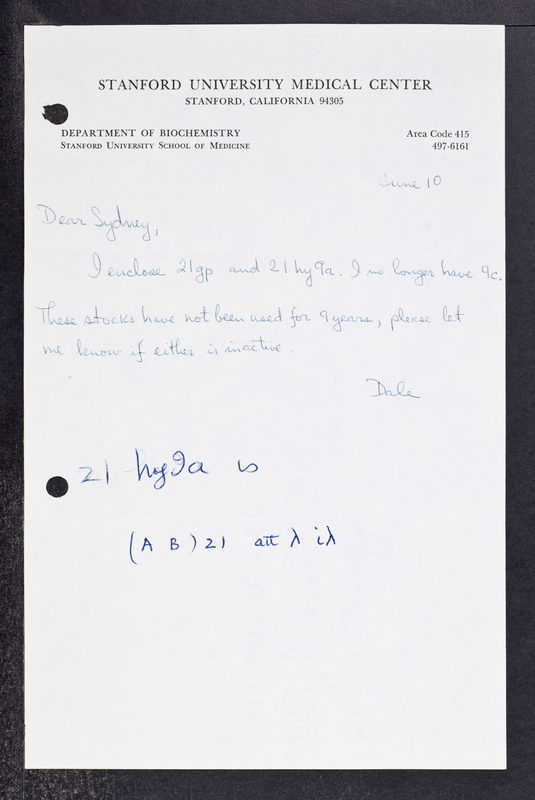 STANFORD UNIVERSITY MEDICAL CENTER
STANFORD, CALIFORNIA 94305
DEPARTMENT OF BIOCHEMISTRY
STANFORD UNIVERSITY SCHOOL OF MEDICINE
Area Code 415
497-6161
June 10
Dear Sydney,
I enclose 21gp and 21hy9a. I no longer have 9c.
These stocks have not been used for 9 years, please let
me know if either is inactive.
Dale
21 hy9a is
(A B) 21 att λ iλ